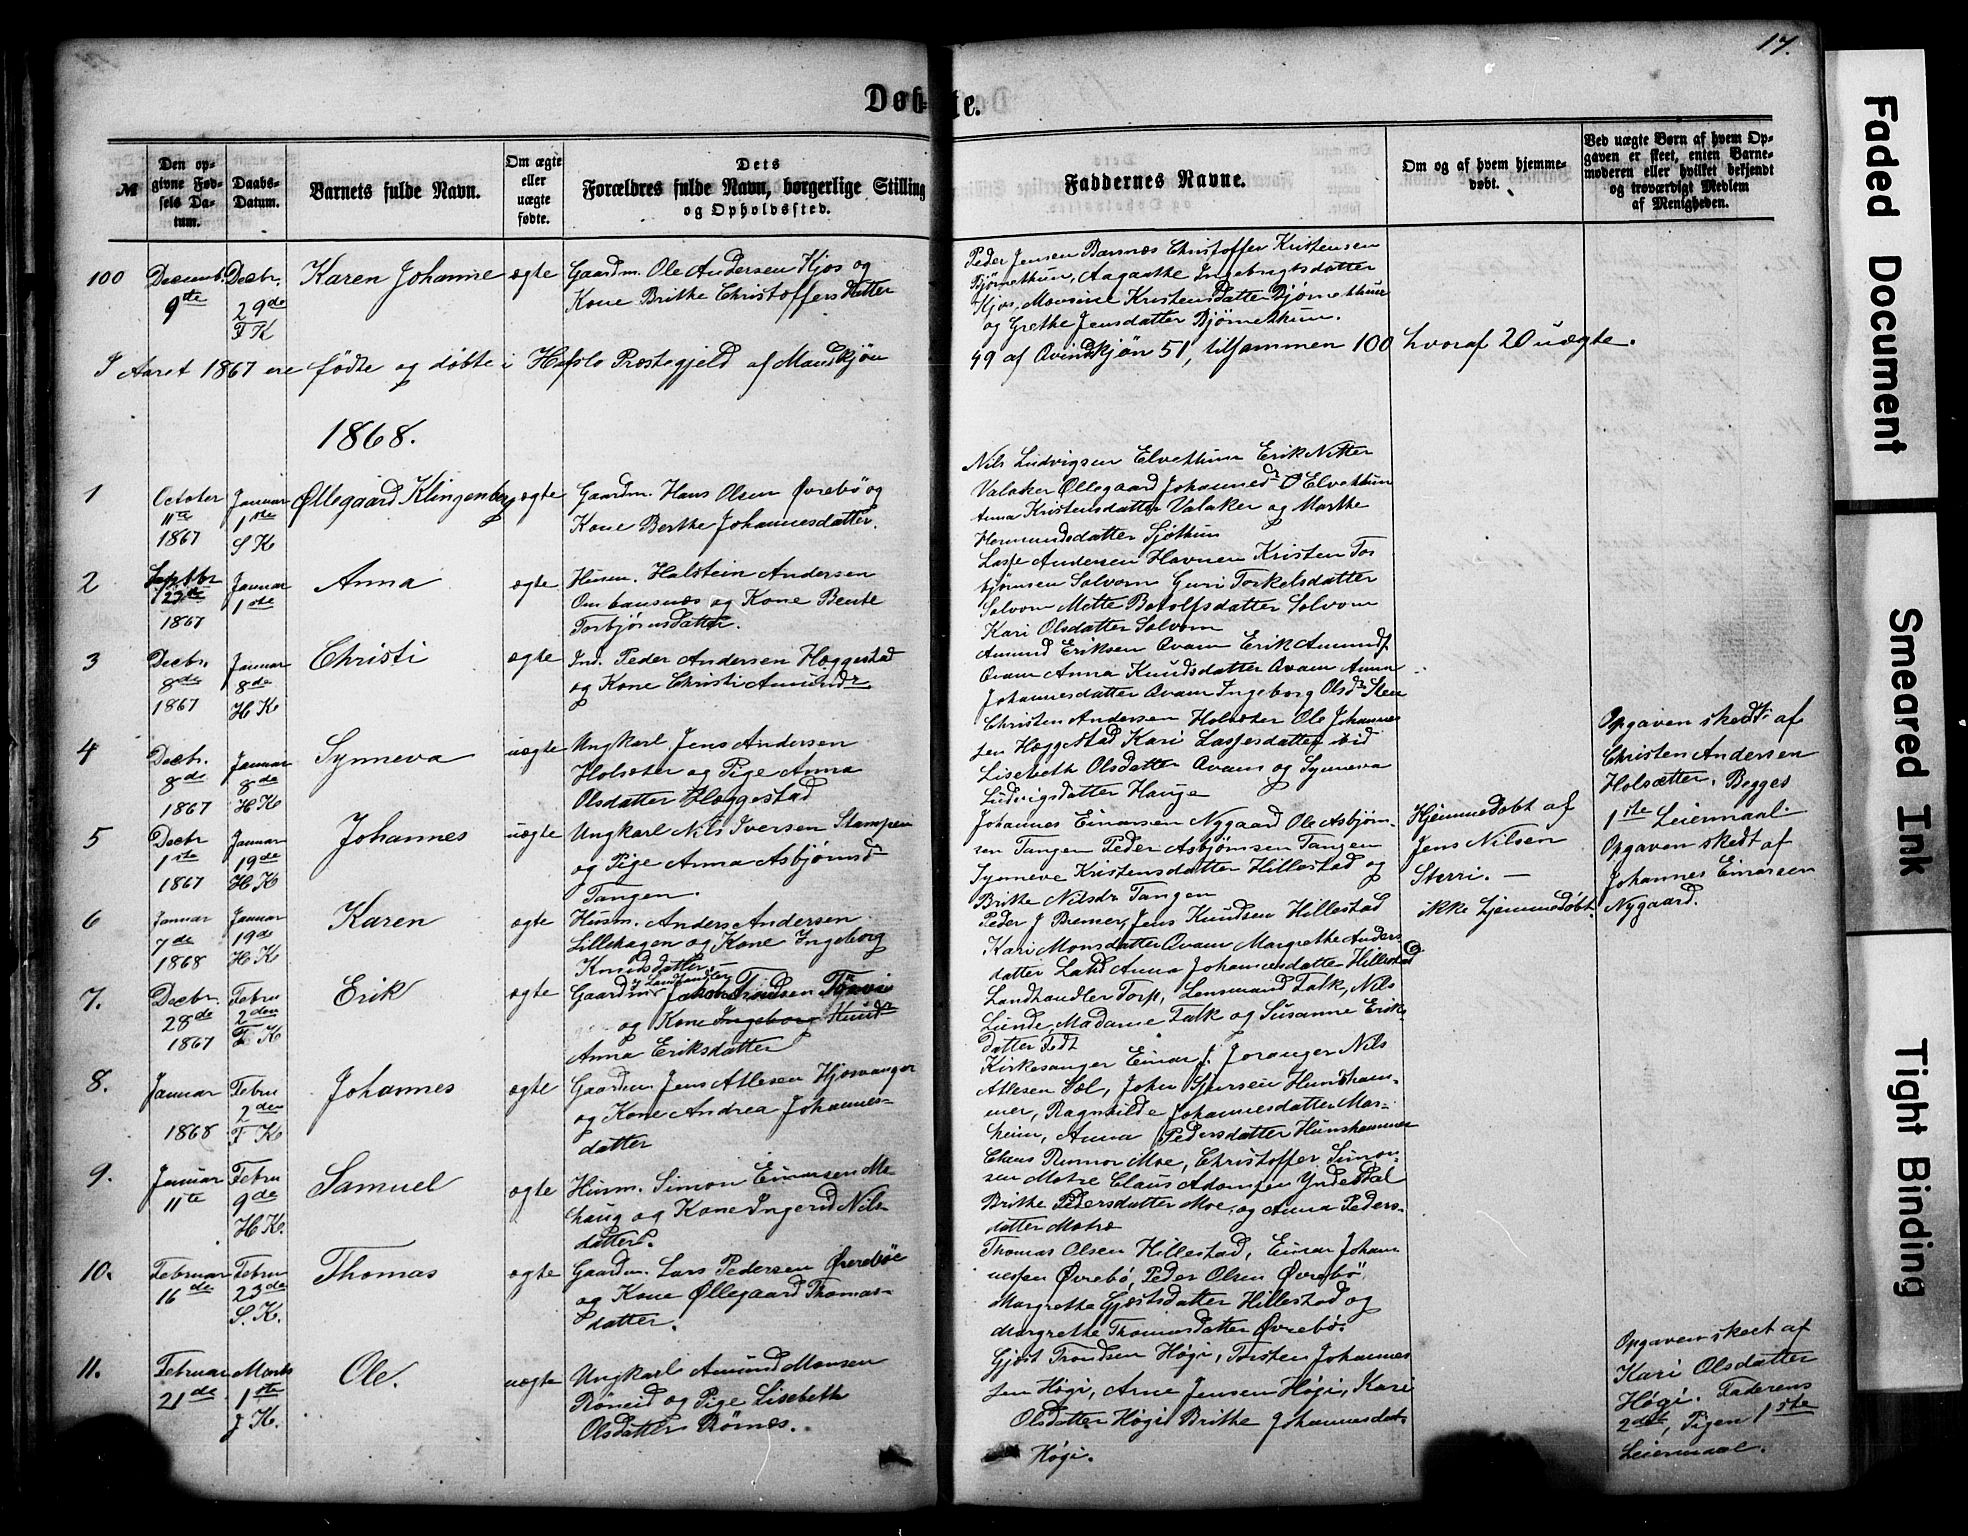 17.
Døb-te.
№
Den op-
givne Fød-
sels Da-
tum.
Daabs-
Datum.
Barnets fulde Navn.
Om ægte
eller
uægte
fødte.
Dets
Forældres fulde Navn, borgerlige Stilling
og Opholdssted.
Faddernes Navne.
Om og af hvem hjemme-
døbt.
Ved uægte Børn af hvem Op-
gaven er skeet, enten Barne-
moderen eller hvilket bekjendt
og troværdigt Medlem
af Menigheden.
100
Decemb.
9te
Decbr.
29de
F K
Karen Johanne
ægte
Gaardm. Ole Andersen Kjos og
Kone Brithe Christoffersdatter
Peder Jensen Barsnæs Christoffer Kristensen
Bjørnethun, Aagaathe Ingebrigtsdatter
Kjos, Mossine Kristensdatter Bjørnethun
og Grethe Jensdatter Bjørnethun.
I Aaret 1867 ere fødte og døbte i Hafslo Præstegjeld af Mandkjøn 49 af Qvindkjøn 51, tilsammen 100 hvoraf 20 uægte.
1868.
1
October
11te
1867
Januar
1ste
S K
Øllegaard Klingenberg
ægte
Gaardm. Hans Olsen Øvrebø og
Kone Berthe Johannesdatter.
Nils Ludvigsen Elvethun Erik Nitter
Valaker Øllegaard Johannesdr Elvethun
Anna Kristensdatter Valaker og Marthe
Hermundsdatter Sjøthun
2
Septbr
23de
1867
Januar
1ste
Anna
ægte
Husm. Halstein Andersen
Ombausnæs og Kone Bente
Torbjørnsdatter.
Lasse Andersen Havnen Kristen Tor
bjørnsen Solvorn Guri Torkelsdatter
Solvorn Mette Botolfsdatter Solvorn
Kari Olsdatter Solvorn
3
Decbr.
8de
1867
Januar
8de
H K
Christi
ægte
Ind. Peder Andersen Hæggestad
og Kone Christi Amundsdr
Amund Eriksen Qvam Erik Amunds
Qvam Anna Knudsdatter Qvam Anna
Johannesdatter Qvam Ingeborg Olsdr Steen
4
Decbr.
8de
1867
Januar
8de
H K
Synneva
uægte
Ungkarl Jens Andersen
Holsæter og Pige Anna
Olsdatter Hæggestad
Christen Andersen Holsæter Ole Johannes
sen Hæggestad Kari Lassesdatter
Lisebeth Olsdatter Qvam og Synneva
Ludvigsdatter Hauge
Opgaven skedt af
Christen Andersen
Holsætter. Begges
1ste Leiermaal.
5
Decbr
1ste
1867
Januar
19de
H K
Johannes
uægte
Ungkarl Nils Iversen Stampen
og Pige Anna Asbjørnsdr
Tangen.
Johannes Einarsen Nygaard Ole Asbjørn-
sen Tangen Peder Asbjørnsen Tangen
Synneve Kristensdatter Hillestad og
Brithe Nilsdr Tangen
Hjemmedøbt af
Jens Nilsen
Sterri. —
Opgaven skedt af
Johannes Einarsen
Nygaard.
6
Januar
7de
1868
Januar
19de
H K
Karen
ægte
Husm. Anders Andersen
Lillehagen og Kone Ingeborg
Knudsdatter
Peder J Bremer, Jens Knudsen Hillestad
Kari Monsdatter Qvam Margrethe Anders
datter Lahd Anna Johannesdatter Hillestad
ikke hjemmedøbt.
7.
Decbr.
28de
1867
Febru
2den
F. K
Erik
ægte
Gaardm. & Landhandler
og Kone Ingeborg
Anna Eriksdatter
Landhandler Torp, Lensmand Falk, Nils
Lunde, Madame Falk og Susanne Eriks
datter Fedt
8.
Januar
1868
Febru
2den
F K
Johannes
ægte
Gaardm. Jens Atlesen Hjosvanger
og Kone Andrea Johannes-
datter
Kirkesanger Einar J. Joranger Nils
Atlesen Sæl, John Sjursen Hundsham-
mer, Ragnhilde Johannesdatter Mar-
heim, Anna Pedersdatter Hunshammer
9.
Januar
11te
Febru
9de
H K.
Samuel
ægte
Husm. Simon Einarsen Mo-
haug og Kone Ingerid Nils-
datter.
Claus Rumor Moe, Christoffer Simon-
sen Molre Claus Adamsen Yndestal
Brithe Pedersdatter Moe og Anna Peders-
datter Molre
10.
Februar
16de
Febru
23de
S. K.
Thomas
ægte
Gaardm. Lars Pedersen Øvrebøe
og Kone Øllegaard Thomas-
datter.
Thomas Olsen Hillestad, Einar Johan
nessen Øvrebø, Peder Olsen Øvrebø
Margrethe Gjestsdatter Hillestad og
Margrethe Thomasdatter Øvrebø.
11.
Februar
21de
Marts
1ste
J K.
Ole.
uægte
Ungkarl Amund Monsen
Røneid og Pige Lisebeth
Olsdatter Rømæs.
Gjest Trondsen Høgi, Torsten Johannes
sen Høgi, Arne Jensen Høgi, Kari
Olsdatter Høgi Brithe Johannesdat.
Høgi.
Opgaven skeet af
Kari Olsdatter
Høgi. Faderens
2det, Pigen 1ste
Leiermaal.
Faded Document
Smeared Ink
Tight Binding